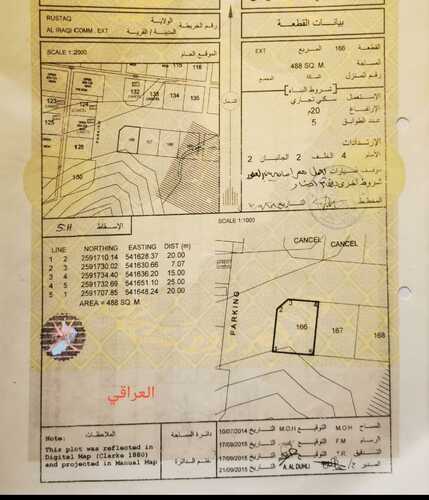 RUSTAQ
الولاية
رقم الخريطة
AL IRAQI (COMM . EXT
المدينة / القرية
بيانات القطعة
SCALE 1:2000
الموقع العام
القطعة 166 المربع EXT
المساحة 488 SQ. M.
رقم المنزل السكة المجمع
شروط البناء
الاستعمال سكني تجاري
الارتفاع 20م
عدد الطوابق 5
الإرتدادات
الأمام 4 الخلف 2 الجانبان 2
موقف سيارات
شروط أخرى
المخطط
التاريخ
115 116
132 133 134 135
123
124
125
128
130
PARKING
166 167 168
الشمال
S:H
الإسقاط
SCALE 1:1000
LINE NORTHING EASTING DIST (m)
1 2 2591710.14 541628.37 20.00
2 3 2591730.02 541630.66 7.07
3 4 2591734.40 541636.20 15.00
4 5 2591732.69 541651.10 25.00
5 1 2591707.85 541648.24 20.00
AREA = 488 SQ. M
CANCEL CANCEL
PARKING
2 3 4
166 167 168
1 5
العراقي
الملاحظات
Note:
This plot was reflected in
Digital Map (Clarke 1880)
and projected in Manual Map
دائرة المساحة
ختم الدائرة
المساح M.O.H التوقيع M.O.H التاريخ 10/07/2014
الرسام F.M التوقيع التاريخ 17/09/2015
التدقيق T.R التوقيع التاريخ 17/09/2015
المدير A. AL DUHLI التاريخ 21/09/2015